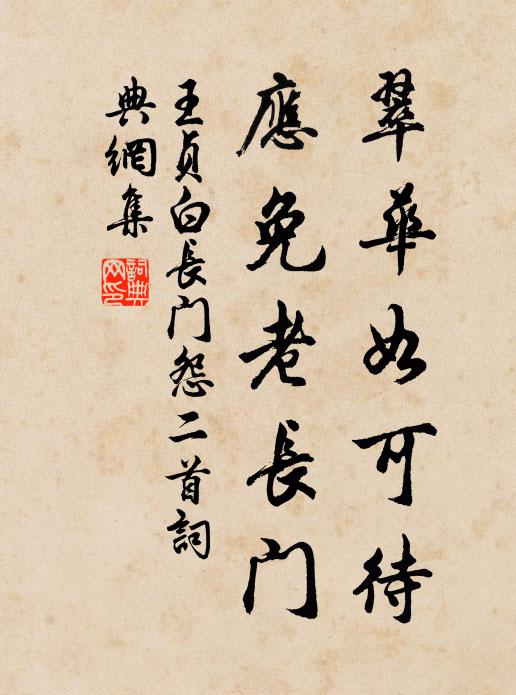 翠華如可待
應免老長門
王貞白長門怨二首詞
典網集
詞典
网印